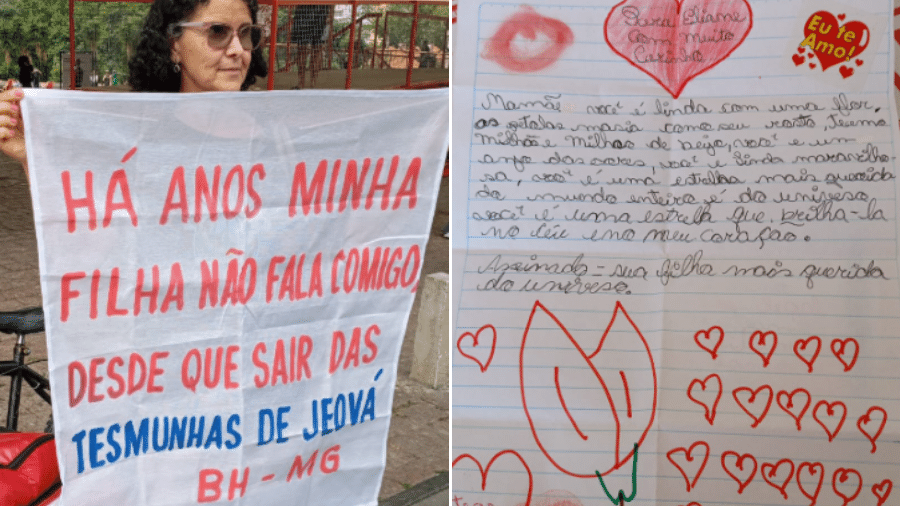 HÁ ANOS MINHA
FILHA NÃO FALA COMIGO,
DESDE QUE SAIR DAS
TESMUNHAS DE JEOVÁ
BH - MG
Para Eliane
com muito
Carinho
Eu te
Amo!
Mamãe você é linda com uma flor,
as petalas macia como seu rosto, te amo
milhão e milhão de beijo, você e um
anjo das cores, você e linda maravilho-
sa, você é uma estrelha mais querida
do mundo enteiro e do universo
você é uma estrelha que brilha la
no céu e no meu coração.
Assinado = sua filha mais querida
do universo.